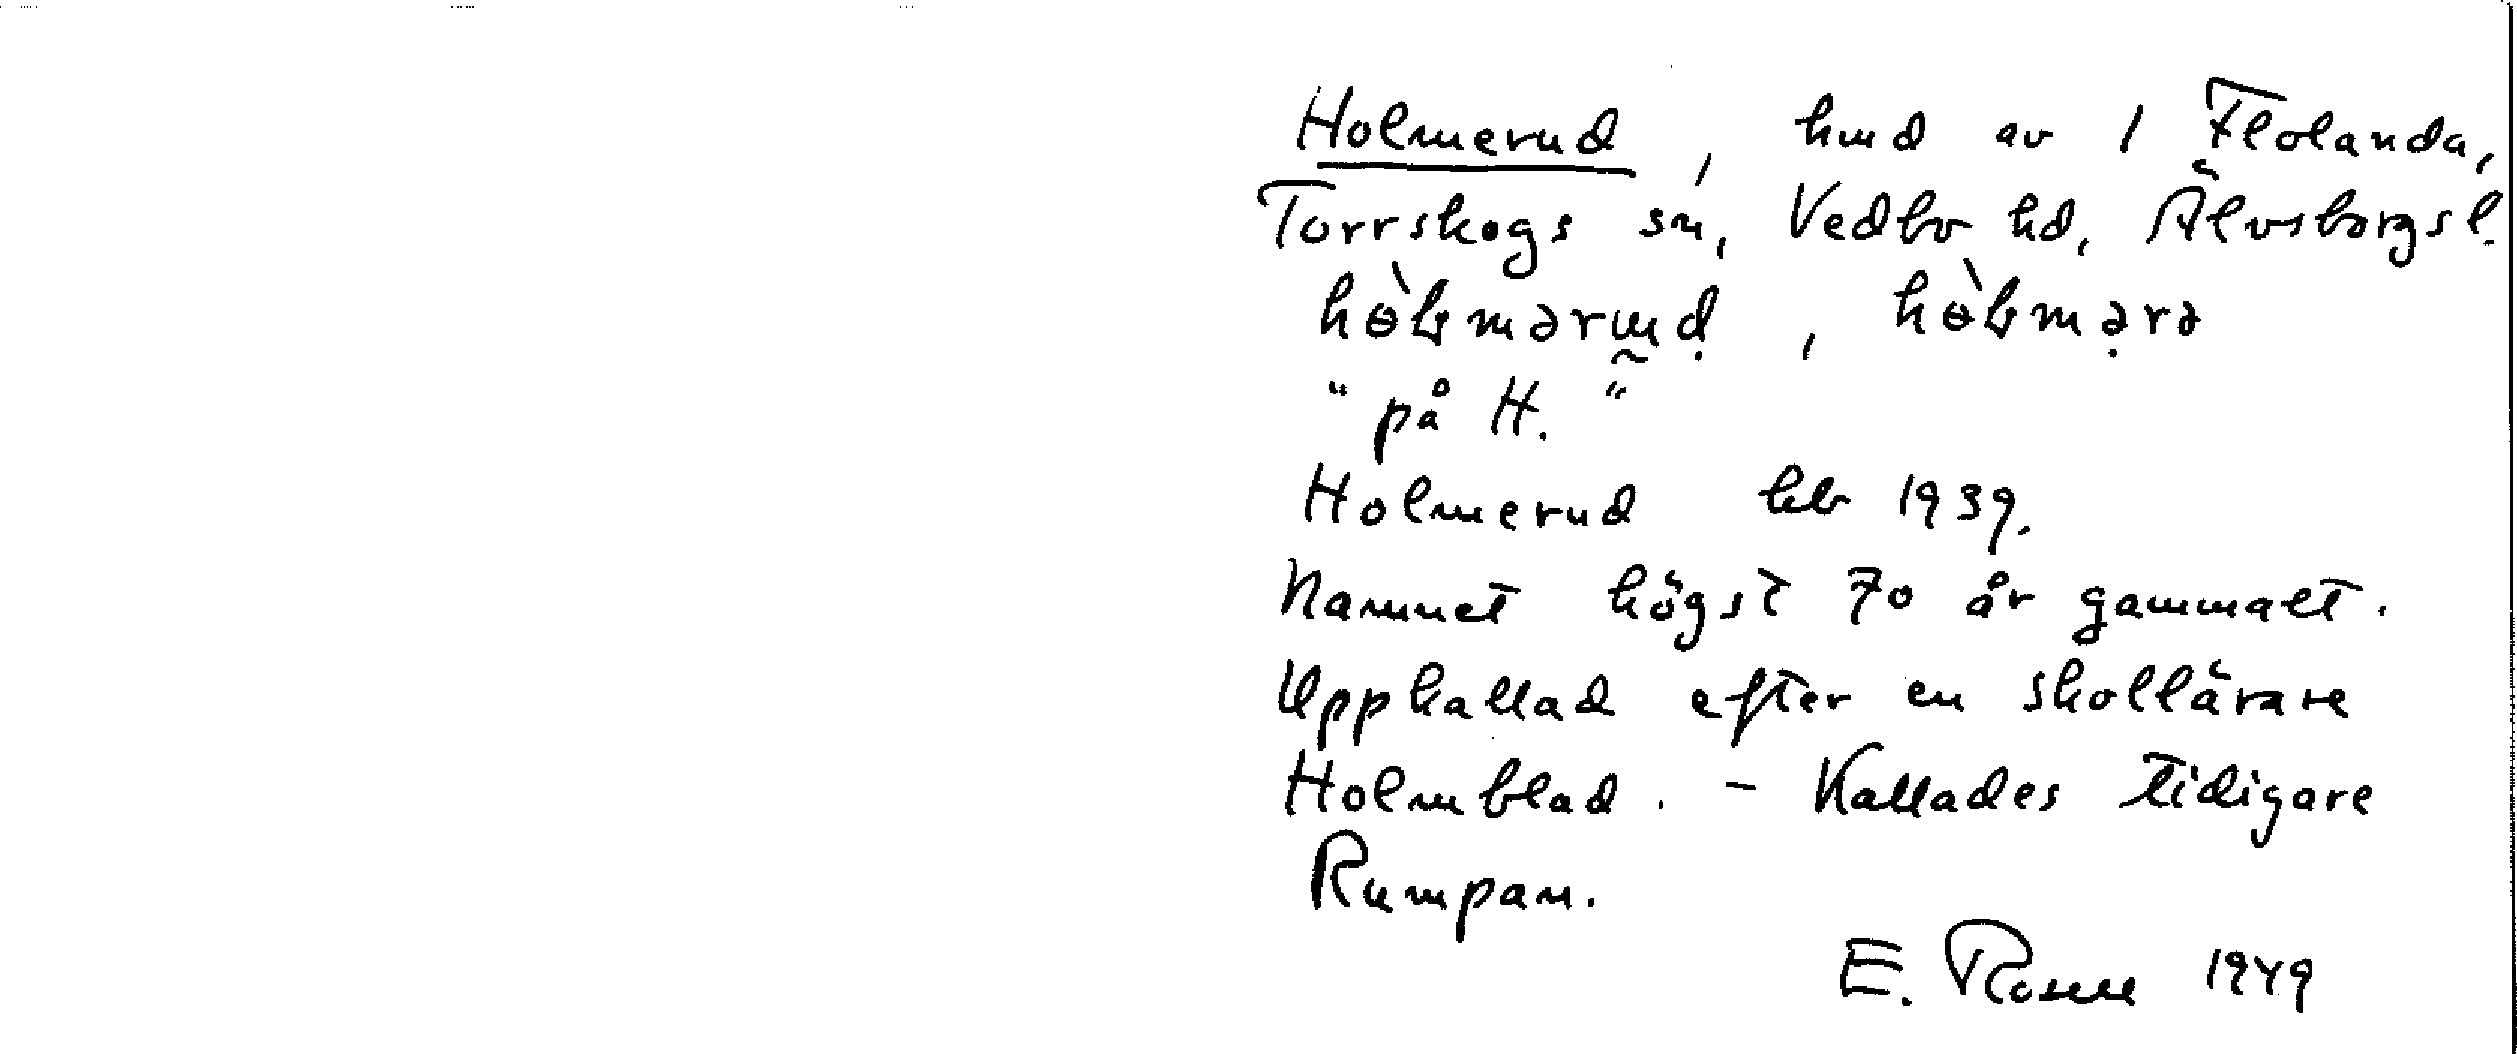 Holmerud, hmd av 1 Flolanda,
Torrskogs sn, Vedbo hd, Älvsborgs l.
hɵ̀ƚmərɯd, hɵ̀ƚmərə
"på H."
Holmerud hlr 1939.
Namnet högst 70 år gammalt.
Uppkallad efter en skollärare
Holmblad. - Kallades tidigare
Rumpan.
E. Rosell 1949